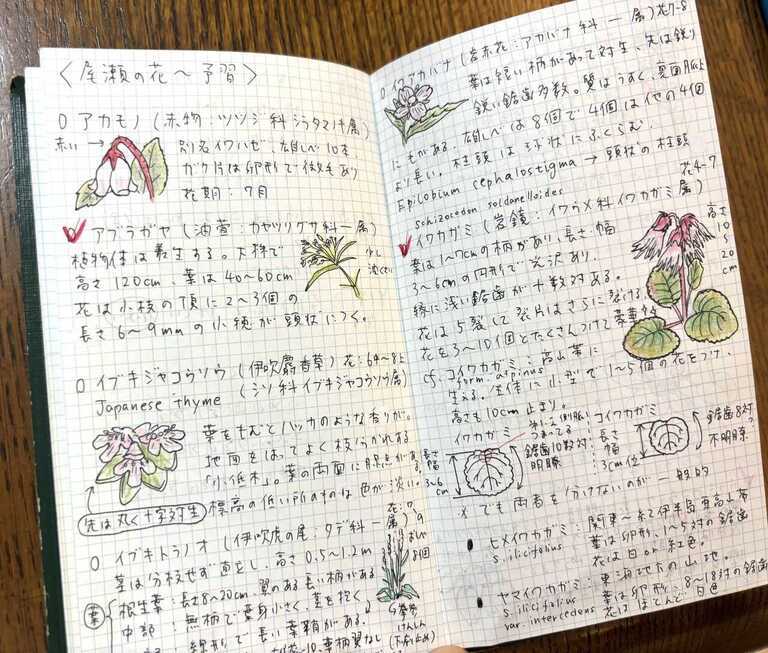 〈尾瀬の花〜予習〉
○ アカモノ (赤物：ツツジ科シラタマノキ属)
赤い→
別名イワハゼ、雄しべ10本
ガク片は卵形で微毛あり
花期：7月
アブラガヤ (油萱：カヤツリグサ科一属)
植物体は叢生する。大株で
高さ120cm、葉は40〜60cm
花は小枝の頂に2〜3個の
長さ6〜9mmの小穂が頭状につく。
少し
油くさい
○ イブキジャコウソウ (伊吹麝香草) 花：6中〜8上
Japanese thyme (シソ科イブキジャコウソウ属)
葉をもむとハッカのような香りが。
地面をはってよく枝分かれする
「小低木」。葉の両面に腺点がある
標高の低い所のものは色が淡い。
先は丸く十字対生
○ イブキトラノオ (伊吹虎の尾：タデ科一属)
茎は分枝せず直立し、高さ0.5〜1.2m
葉
根生葉：長さ8〜20cm 翼のある長い柄がある
中部：無柄で葉身小さく、茎を抱く
線形で長い葉鞘がある
8個
○ イワアカバナ (岩赤花：アカバナ科一属) 花7-8
葉は短い柄があって対生、先は鋭り
鋭い鋸歯多数。質はうすく、裏面脈上
にもがある。雄しべは8個で4個は他の4個
より長い。柱頭は球状にふくらむ
Epilobium cephalostigma → 頭状の柱頭
schizocodon soldanelloides
花4-7
イワカガミ (岩鏡：イワウメ科イワカガミ属)
葉は1〜7cmの柄があり、長さ・幅
3〜6cmの円形で光沢あり
縁に浅い鋸歯が十数対ある。
花は5裂して裂片はさらに裂ける
花を3〜10個とたくさんつけて豪華
高さ
10
5
20
cm
cf. コイワカガミ：高山帯に
form. alpinus
生える。全体に小型で1〜5個の花をつけ、
高さも10cm止まり。
イワカガミ
コイワカガミ
長さ
幅
3〜6
cm
鋸歯10数対
明瞭
：長さ
幅
：3cm位
鋸歯8対?
不明瞭
※ でも両者を分けないのが一般的
● ヒメイワカガミ：関東〜紀伊半島亜高山帯
s. ilicifolius 葉は卵形、1〜5対の鋸歯
花は白or紅色。
● ヤマイワカガミ：東海地方の山地。
s. ilicifolius 葉は卵形：8〜18対の鋸歯
var. intercedens 花はほとんど白色